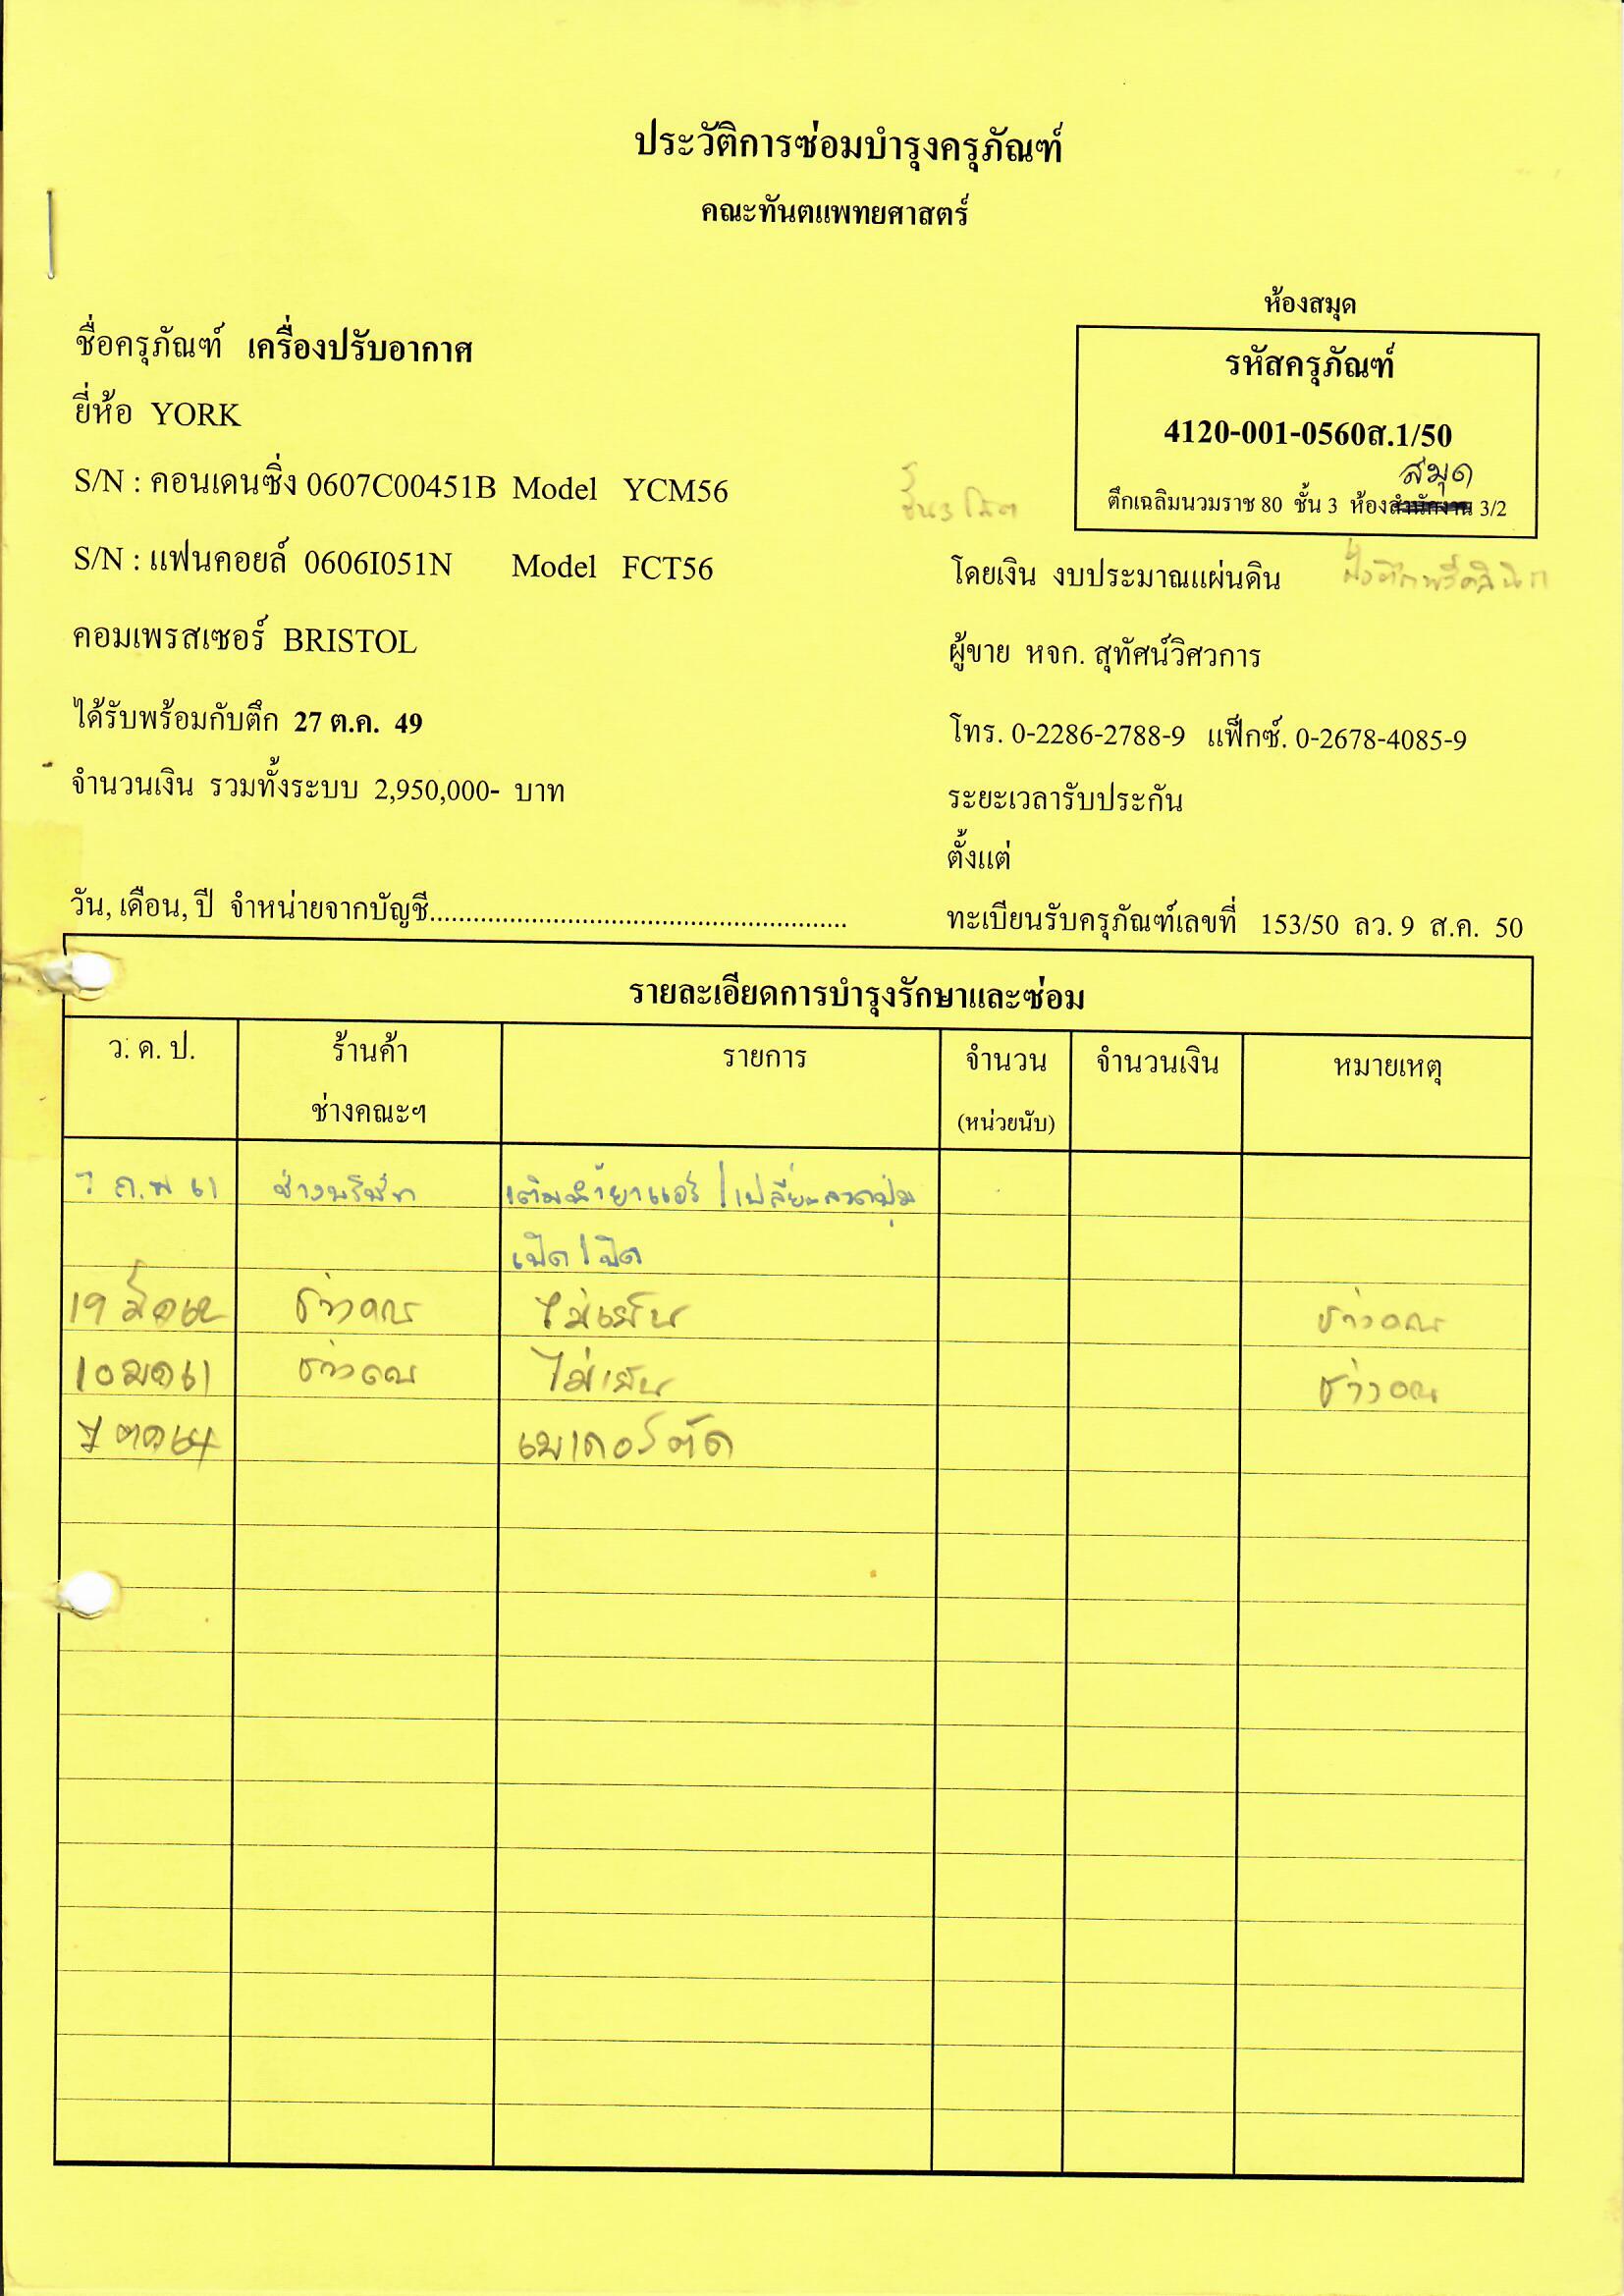 ประวัติการซ่อมบำรุงครุภัณฑ์
คณะทันตแพทยศาสตร์
ห้องสมุด
ชื่อครุภัณฑ์ เครื่องปรับอากาศ
รหัสครุภัณฑ์
ยี่ห้อ YORK
4120-001-0560ส.1/50
สมุด
S/N : คอนเดนซิ่ง 0607C00451B Model YCM56
ตึกเฉลิมนวมราช 80 ชั้น 3 ห้องสำนักงาน 3/2
ชั้น 3
S/N : แฟนคอยล์ 0606I051N Model FCT56
โดยเงิน งบประมาณแผ่นดิน
ฝั่งตึกพรีคลินิก
คอมเพรสเซอร์ BRISTOL
ผู้ขาย หจก. สุทัศน์วิศวการ
ได้รับพร้อมกับตึก 27 ต.ค. 49
โทร. 0-2286-2788-9 แฟ็กซ์. 0-2678-4085-9
จำนวนเงิน รวมทั้งระบบ 2,950,000- บาท
ระยะเวลารับประกัน
ตั้งแต่
วัน, เดือน, ปี จำหน่ายจากบัญชี..........................................................
ทะเบียนรับครุภัณฑ์เลขที่ 153/50 ลว. 9 ส.ค. 50
รายละเอียดการบำรุงรักษาและซ่อม
ว. ค. ป. ร้านค้า รายการ จำนวน จำนวนเงิน หมายเหตุ
ช่างคณะฯ (หน่วยนับ)
7 ก.พ 61 ช่างบริษัท เติมน้ำยาแอร์ / เปลี่ยน ปุ่ม
เปิด / ปิด
19 มีค 62 ช่างคณะ ไม่เย็น ช่างคณะ
10 มค 61 ช่างคณะ ไม่เย็น ช่างคณะ
7 ตค 64 เบเกอร์ตัด